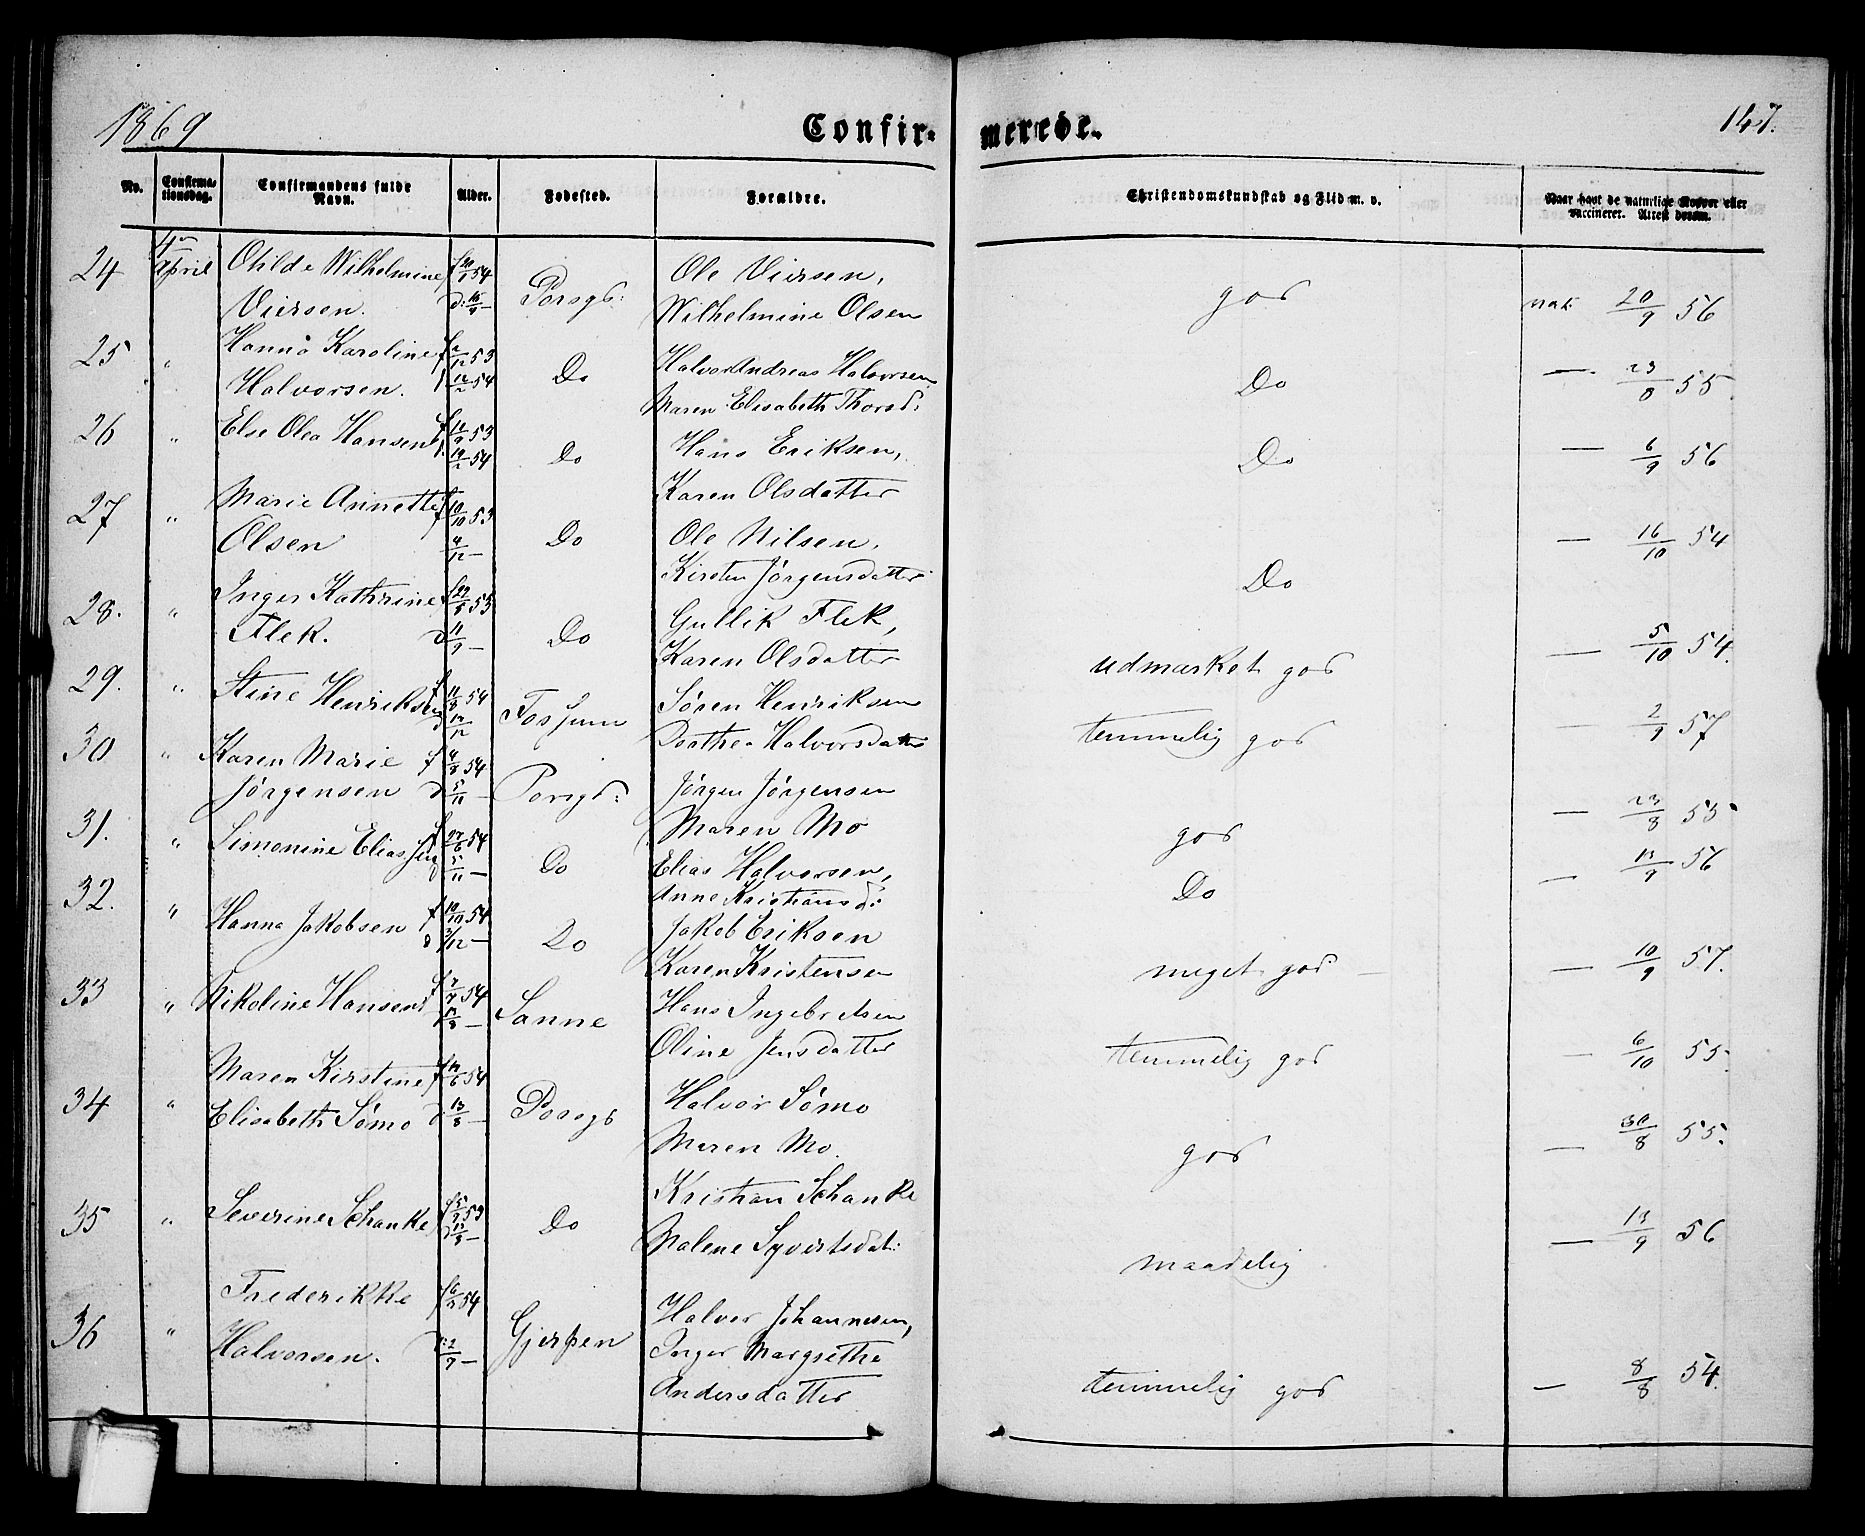 1869 Confirmerede. 147.
No. Confirmationsdag. Confirmandens fulde Navn. Alder. Fødested. Forældre. Christendomskundskab og Flid m. v. Naar havt de naturlige Kopper eller vaccineret. Attest derom.
24 4de April Othilde Wilhelmine Viersen. Porsg: Ole Viersen, Wilhelmine Olsen god nat. 20/9 56
25 " Hanna Karoline Halvorsen. f 2/12 53 Do Halvor Andreas Halvorsen Maren Elisabeth Thorsd: Do — 23/8 55
26 " Else Olea Hansen Do Hans Eriksen, Karen Olsdatter Do — 6/9 56
27 " Marie Annette Olsen f 10/10 53 4/12 — Do Ole Nilsen, Kirsten Jørgensdatter Do — 16/10 54
28. " Inger Kathrine Flek. d 11/9 — Do Gullik Flek, Karen Olsdatter udmærket god — 5/10 54.
29. " Stine Henriksen f 11/8 54 Fossum Søren Henriksen Dorthea Halvorsdatter temmelig god — 2/9 57
30 " Karen Marie Jørgensen f 4/8 54 d 5/11 — Porsgd: Jørgen Jørgensen Maren Mo god — 23/8 55
31. " Simonine Eliassen f 27/6 54 d 5/11 — Do Elias Halvorsen, Anne Kristiansd: Do — 13/9 56
32. " Hanna Jakobsen f 10/10 54 d 3/12 — Do Jakob Eriksen Karen Kristensen meget god — 10/9 57.
33 " Nikoline Hansen Sanne Hans Ingebretsen Oline Jensdatter temmelig god — 6/10 55.
34 " Maren Kirstine Elisabeth Sømo f 14/6 54 d 13/8 — Porsgb Halvor Sømo Maren Mo. god — 30/8 55.
35 " Severine Schanke Do Kristian Schanke Malene Syvertsdat: maadelig — 13/9 56
36 " Frederikke Halvorsen. d: 2/7 — Gjerpen Halvor Johannesen, Inger Margrethe Andersdatter temmelig god — 8/8 54.